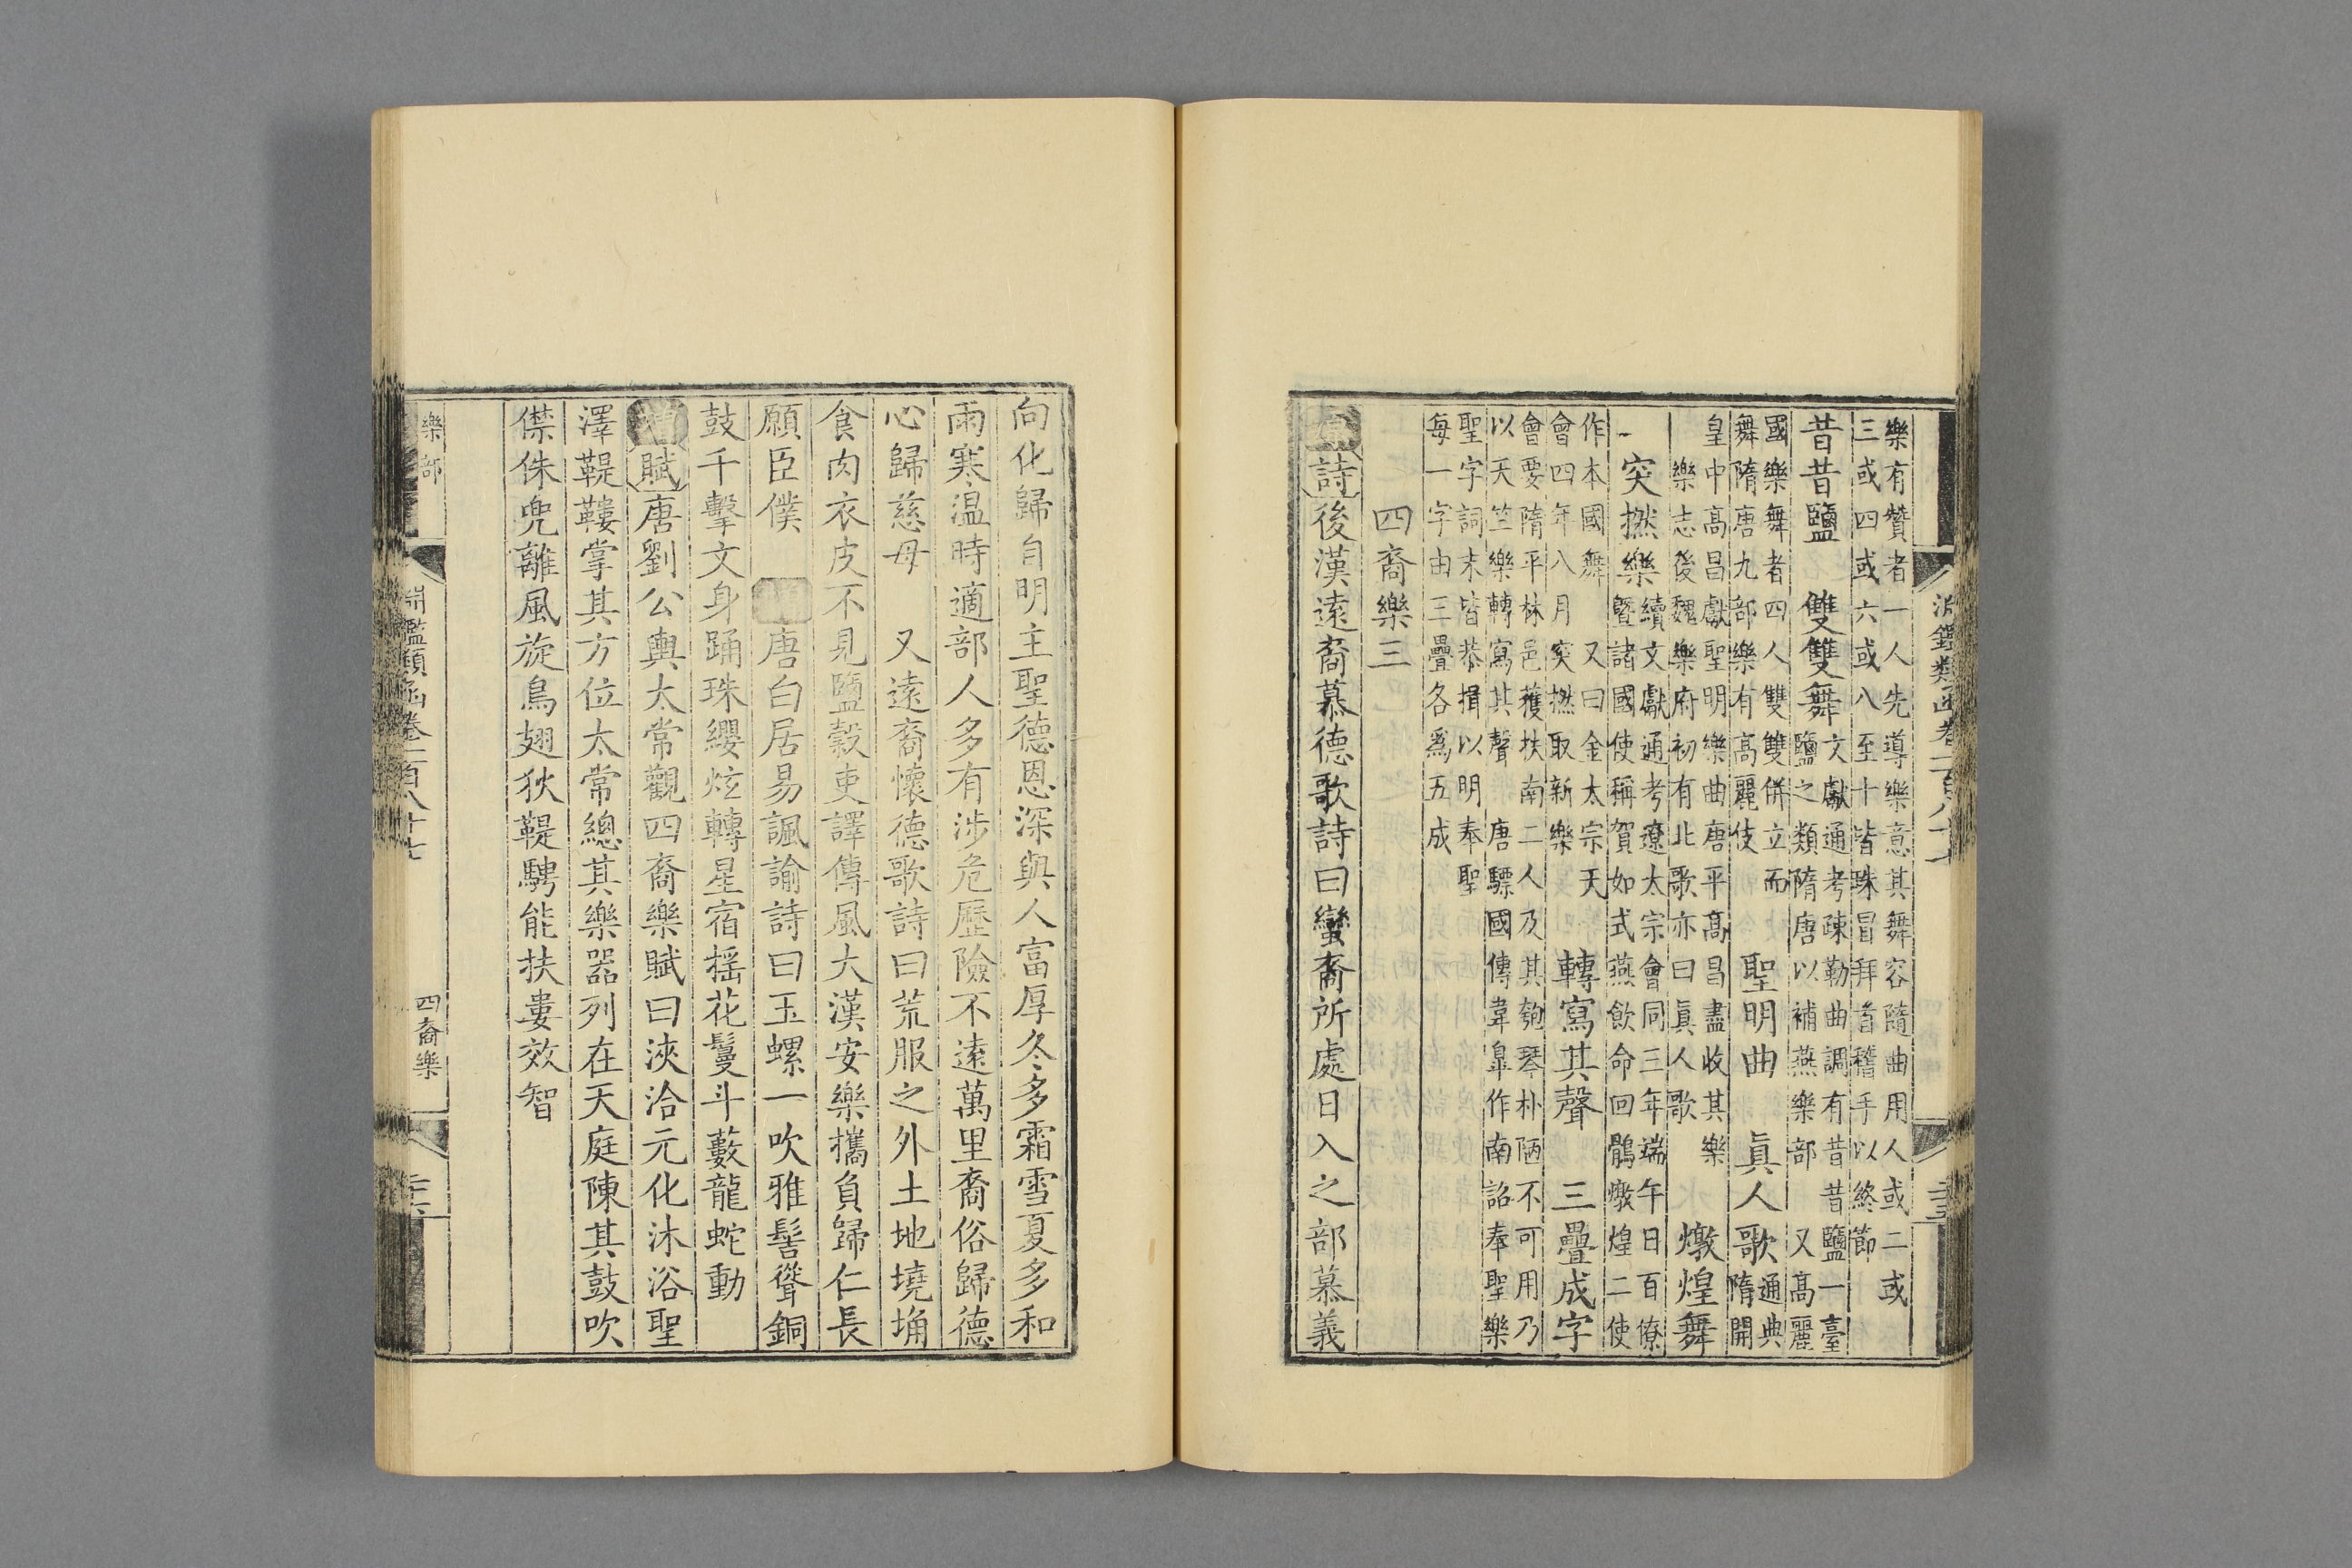 樂有贊者一人先導樂意其舞容隨曲用人或二或
三或四或六或八至十皆珠冒拜首稽手以終節
昔昔鹽 文獻通考疎勒曲調有昔昔鹽一臺
鹽之類隋唐以補燕樂部 雙雙舞 又高麗
國樂舞者四人雙雙併立而
舞隋唐九部樂有高麗伎 聖明曲 通典
隋開
皇中高昌獻聖明樂曲唐平高昌盡收其樂 眞人歌
樂志後魏樂府初有北歌亦曰眞人歌 燉煌舞
突撚樂 續文獻通考遼太宗會同三年端午日百僚
暨諸國使稱賀如式燕飲命回鶻燉煌二使
作本國舞 又曰金太宗天
會四年八月突撚取新樂 轉寫其聲 三疊成字
會要隋平林邑獲扶南二人及其匏琴朴陋不可用乃
以天竺樂轉寫其聲 唐驃國傳韋皐作南詔奉聖樂
聖字詞末皆恭揖以明奉聖
每一字由三疊各爲五成
四裔樂三
詩後漢遠裔慕德歌詩曰蠻裔所處日入之部慕義
向化歸自明主聖德恩深與人富厚冬多霜雪夏多和
雨寒温時適部人多有涉危歷險不遠萬里裔俗歸德
心歸慈母 又遠裔懷德歌詩曰荒服之外土地墝埆
食肉衣皮不見鹽穀吏譯傳風大漢安樂攜負歸仁長
願臣僕 唐白居易諷諭詩曰玉螺一吹雅髻聳銅
鼓千擊文身踊珠纓炫轉星宿揺花鬘斗藪龍蛇動
賦唐劉公輿太常觀四裔樂賦曰浹洽元化沐浴聖
澤鞮鞻掌其方位太常總其樂器列在天庭陳其鼓吹
僸侏兜離風旋鳥翅狄鞮騁能扶婁效智
樂部
淵鑑類函卷一百八十七
四裔樂